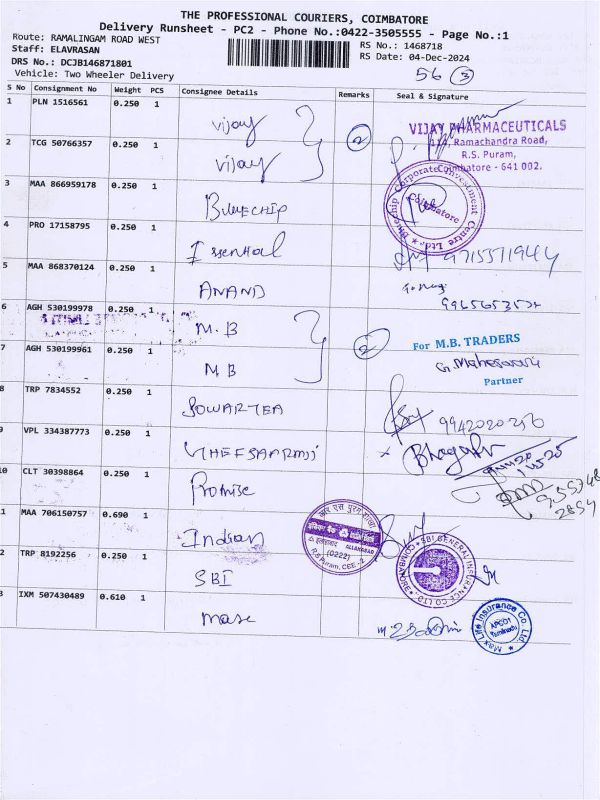 THE PROFESSIONAL COURIERS, COIMBATORE
Delivery Runsheet - PC2 - Phone No.:0422-3505555 - Page No.:1
Route: RAMALINGAM ROAD WEST
RS No.: 1468718
Staff: ELAVRASAN
RS Date: 04-Dec-2024
DRS No.: DCJB146871801
Vehicle: Two Wheeler Delivery
56 3
S No Consignment No Weight PCS Consignee Details Remarks Seal & Signature
1 PLN 1516561 0.250 1 vijay 2
VIJAY PHARMACEUTICALS
114, Ramachandra Road,
R.S. Puram,
Coimbatore - 641 002.
2 TCG 50766357 0.250 1 vijay
3 MAA 866959178 0.250 1 BLUECHIP
Bluechip Corporate Investment Centre Ltd. * Coimbatore
4 PRO 17158795 0.250 1 Issential 9715571944
5 MAA 868370124 0.250 1 ANAND
6 AGH 530199978 0.250 1 M.B 2
For M.B. TRADERS
7 AGH 530199961 0.250 1 M B
G. Maheswari
Partner
8 TRP 7834552 0.250 1 9942020256
9 VPL 334387773 0.250 1
10 CLT 30398864 0.250 1 Promise
11 MAA 706150757 0.690 1 Indian
ALLAHABAD
(0222)
R.S Puram, CBE.-2
SBI GENERAL INSURANCE CO LTD., COIMBATORE
12 TRP 8192256 0.250 1 SBI
13 IXM 507430489 0.610 1 max
Max Life Insurance Co. Ltd.
Tamilnadu